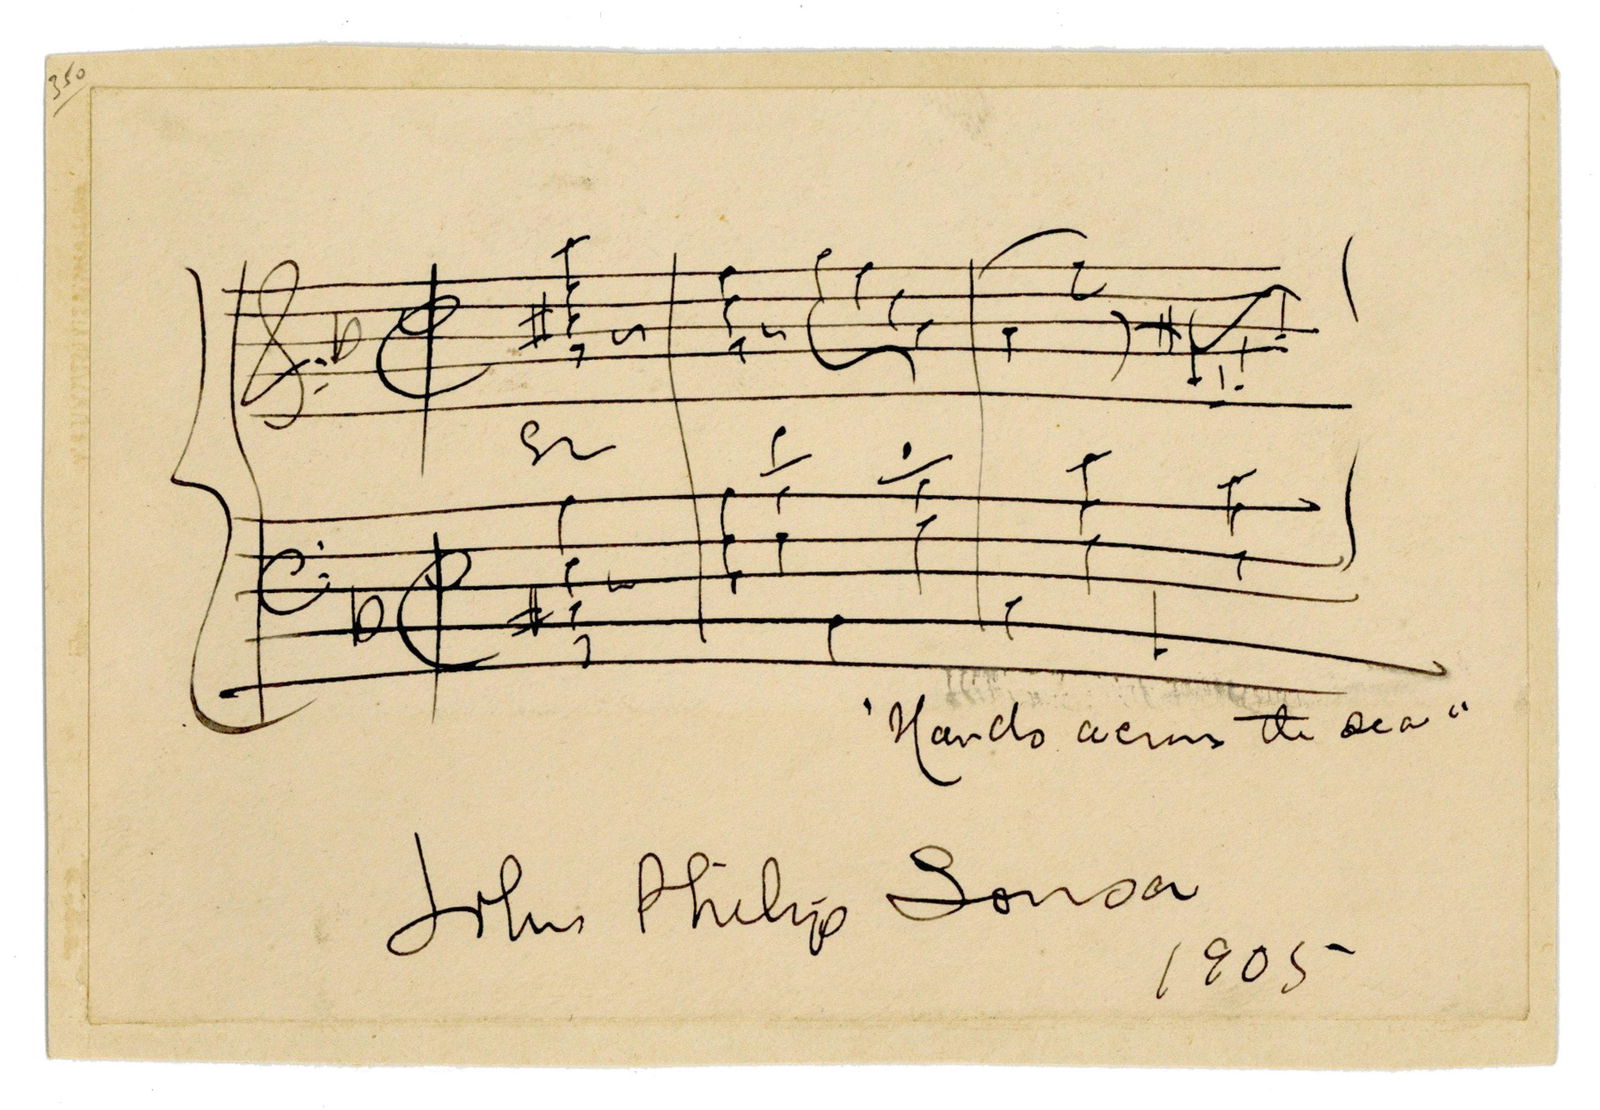 350
"Hands across the sea"
John Philip Sousa
1905